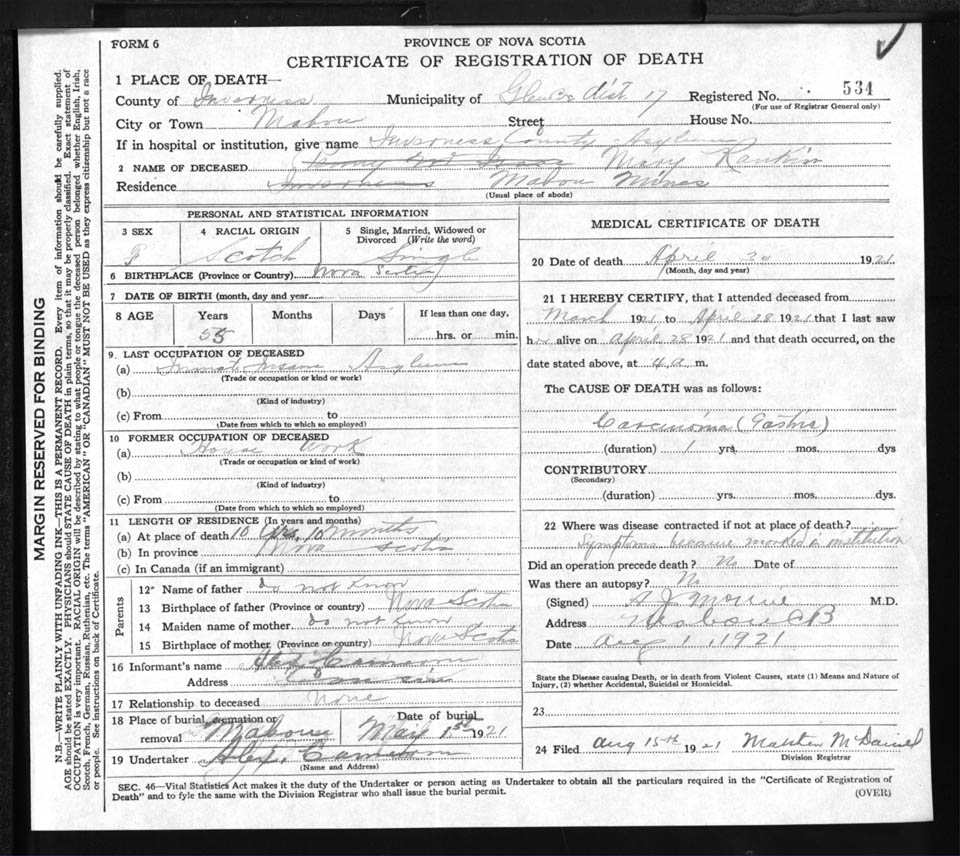 FORM 6
PROVINCE OF NOVA SCOTIA
CERTIFICATE OF REGISTRATION OF DEATH
1 PLACE OF DEATH—
County of Inverness Municipality of Dist 17 Registered No. 534
(For use of Registrar General only)
City or Town Mabou Street House No.
If in hospital or institution, give name Inverness County Asylum
2 NAME OF DECEASED Mary Rankin
Residence Inverness Mabou Mines
(Usual place of abode)
PERSONAL AND STATISTICAL INFORMATION
3 SEX 4 RACIAL ORIGIN 5 Single, Married, Widowed or Divorced (Write the word)
F Scotch Single
6 BIRTHPLACE (Province or Country) Nova Scotia
7 DATE OF BIRTH (month, day and year)
8 AGE Years Months Days If less than one day,
55 hrs. or min.
9. LAST OCCUPATION OF DECEASED
(a) Inmate Insane Asylum
(Trade or occupation or kind or work)
(b)
(Kind of industry)
(c) From to
(Date from which to which so employed)
10 FORMER OCCUPATION OF DECEASED
(a) House Work
(Trade or occupation or kind or work)
(b)
(Kind of industry)
(c) From to
(Date from which to which so employed)
11 LENGTH OF RESIDENCE (In years and months)
(a) At place of death 10 yrs, 10 months
(b) In province Nova Scotia
(c) In Canada (if an immigrant)
Parents
12 Name of father do not know
13 Birthplace of father (Province or country) Nova Scotia
14 Maiden name of mother do not know
15 Birthplace of mother (Province or country) Nova Scotia
16 Informant's name Alex Cameron
Address
17 Relationship to deceased None
18 Place of burial, cremation or removal Mabou Date of burial May 1st 1921
19 Undertaker Alex. Cameron
(Name and Address)
MEDICAL CERTIFICATE OF DEATH
20 Date of death April 30 1921
(Month, day and year)
21 I HEREBY CERTIFY, that I attended deceased from
March 1921 to April 28 1921 that I last saw
her alive on April 28 1921 and that death occurred, on the
date stated above, at 4 a. m.
The CAUSE OF DEATH was as follows:
Carcinoma (Gastric)
(duration) 1 yrs. mos. dys
CONTRIBUTORY
(Secondary)
(duration) yrs. mos. dys.
22 Where was disease contracted if not at place of death?
Symptoms became marked in institution
Did an operation precede death? No Date of
Was there an autopsy? No
(Signed) A J M.D.
Address Mabou CB
Date Aug 1, 1921
State the Disease causing Death, or in death from Violent Causes, state (1) Means and Nature of
Injury, (2) whether Accidental, Suicidal or Homicidal.
23
24 Filed Aug 15th 1921 McDaniel
Division Registrar
SEC. 46—Vital Statistics Act makes it the duty of the Undertaker or person acting as Undertaker to obtain all the particulars required in the "Certificate of Registration of
Death" and to fyle the same with the Division Registrar who shall issue the burial permit.
(OVER)
MARGIN RESERVED FOR BINDING
N.B.—WRITE PLAINLY WITH UNFADING INK—THIS IS A PERMANENT RECORD. Every item of information should be carefully supplied.
AGE should be stated EXACTLY. PHYSICIANS should STATE CAUSE OF DEATH in plain terms, so that it may be properly classified. Exact statement of
OCCUPATION is very important. RACIAL ORIGIN will be described by stating to what people or tongue the deceased person belonged whether English, Irish,
Scotch, French, German, Russian, Ruthenian, etc. The terms "AMERICAN" OR "CANADIAN" MUST NOT BE USED as they express citizenship but not a race
or people. See instructions on back of Certificate.